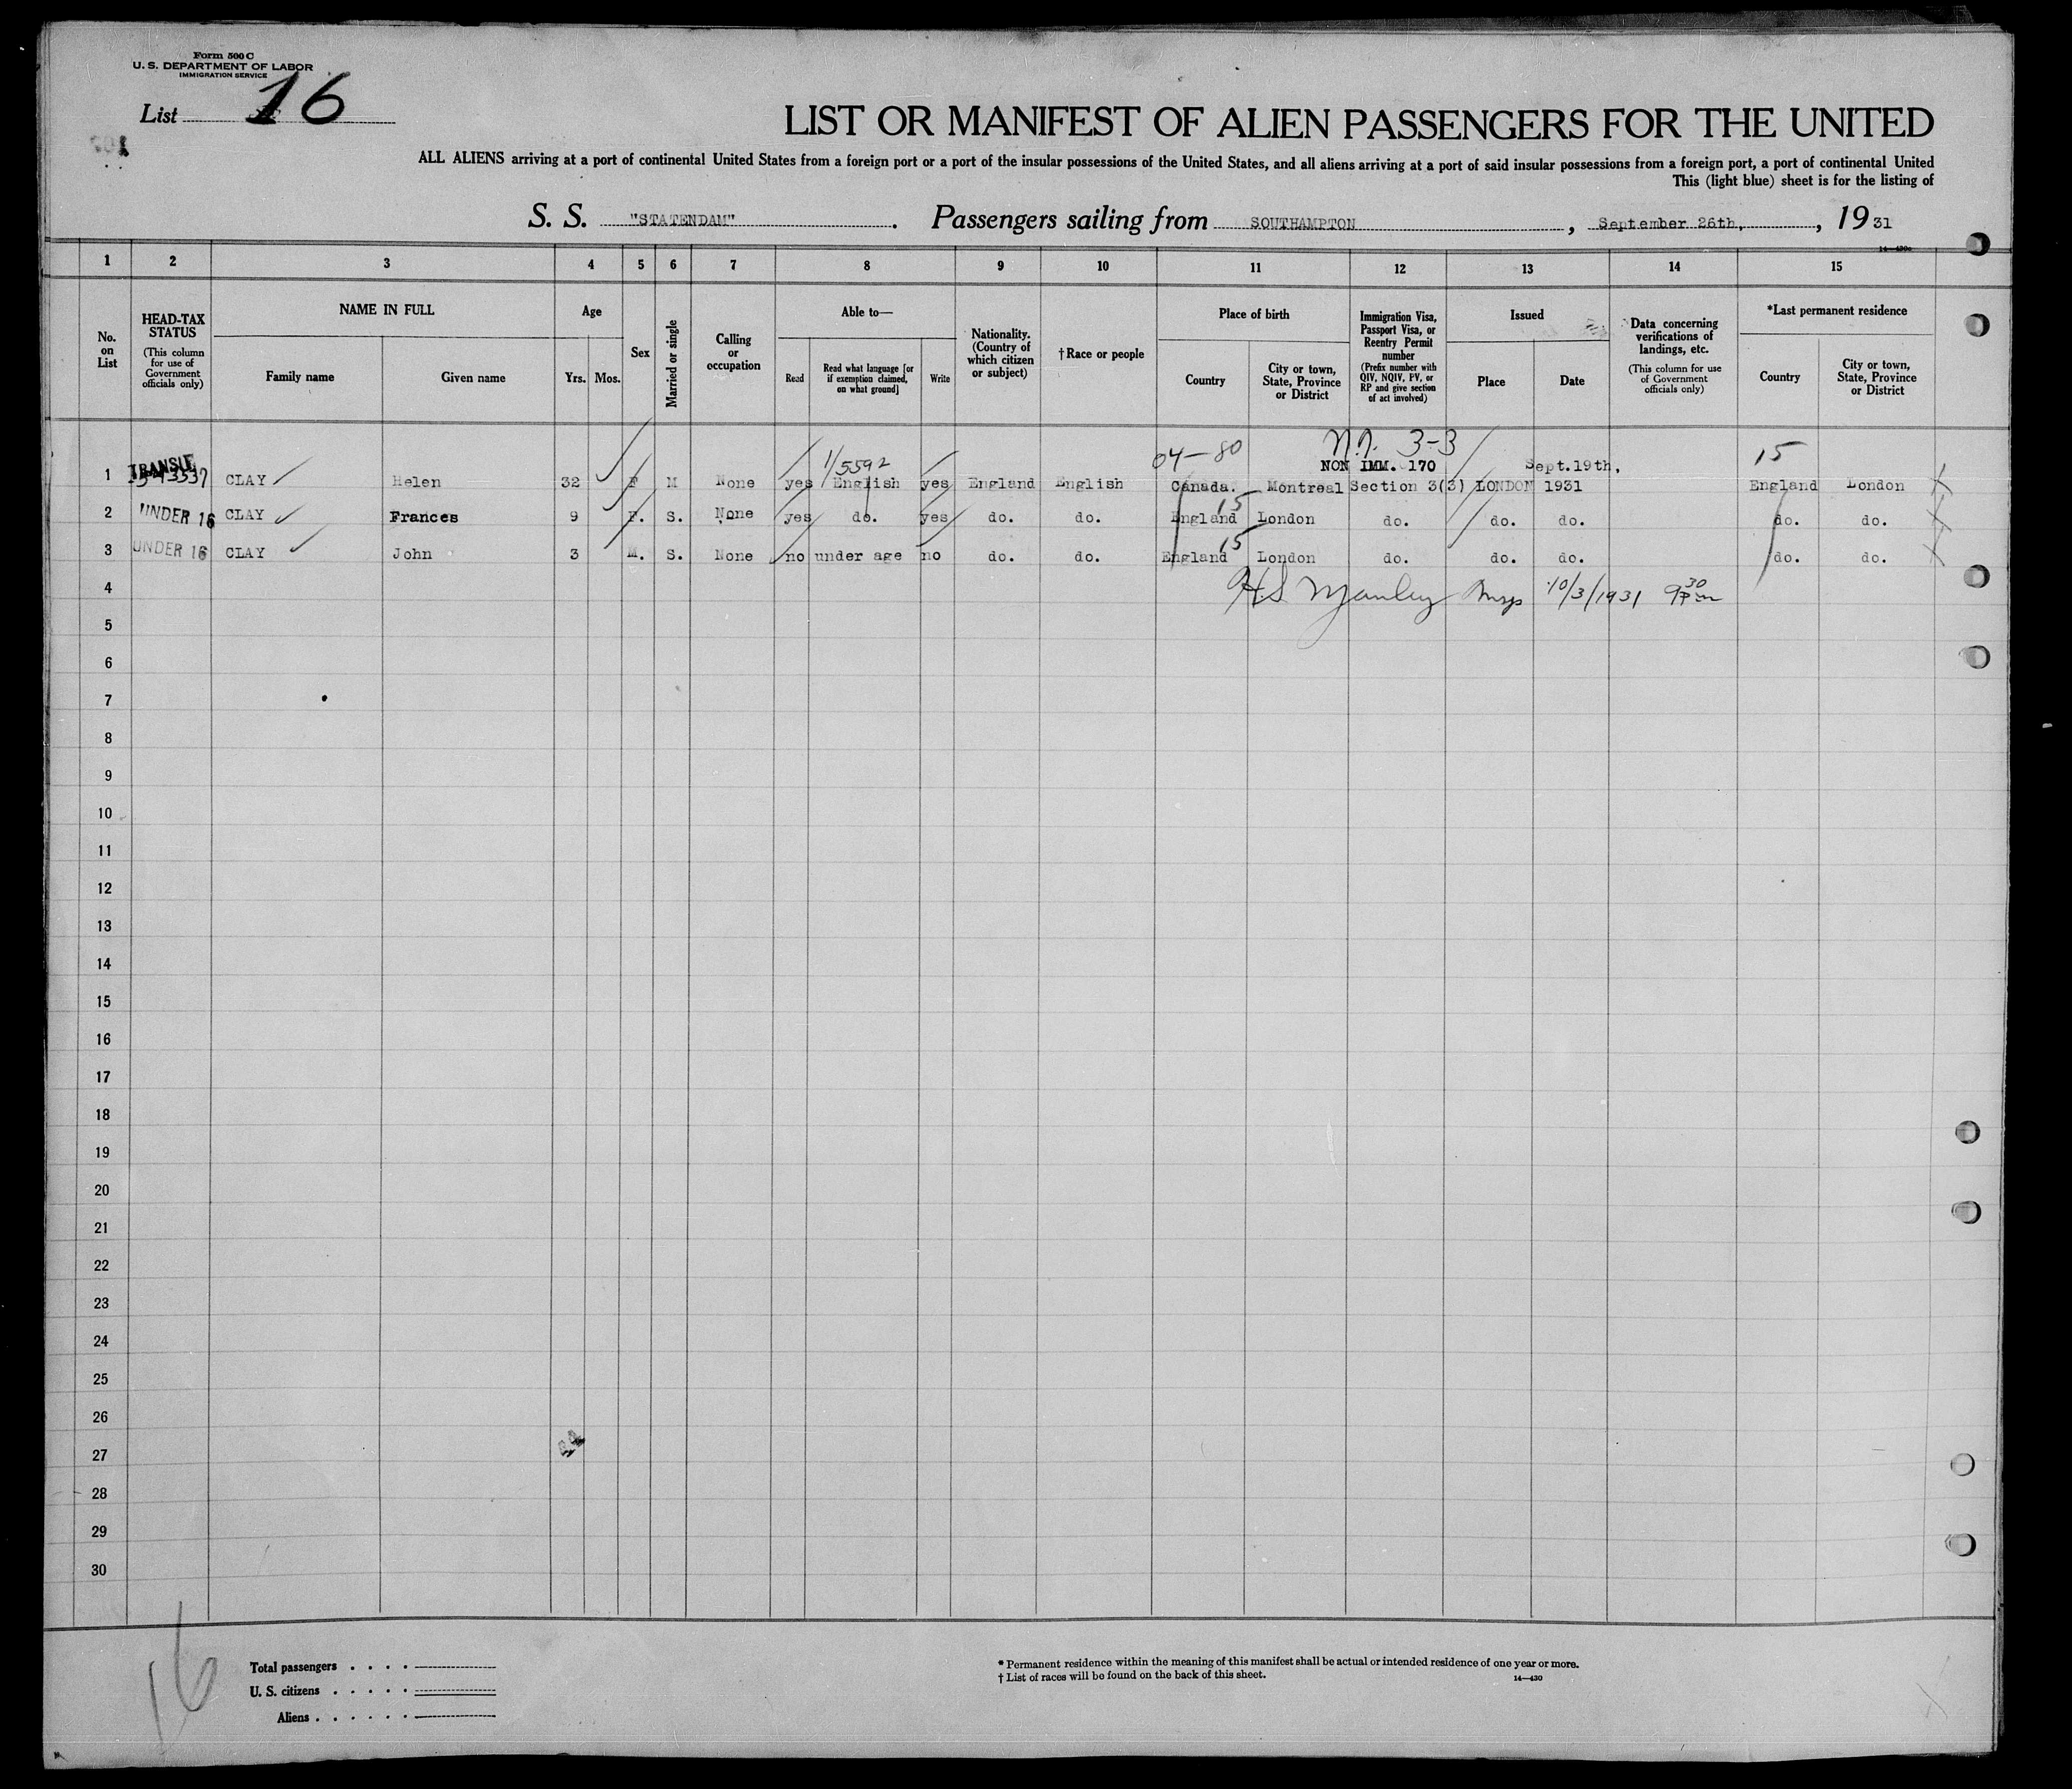 Form 500 C
U. S. DEPARTMENT OF LABOR
IMMIGRATION SERVICE
List 16
LIST OR MANIFEST OF ALIEN PASSENGERS FOR THE UNITED
ALL ALIENS arriving at a port of continental United States from a foreign port or a port of the insular possessions of the United States, and all aliens arriving at a port of said insular possessions from a foreign port, a port of continental United
This (light blue) sheet is for the listing of
S. S. "STATENDAM". Passengers sailing from SOUTHAMPTON, September 26th, , 1931
1 2 3 4 5 6 7 8 9 10 11 12 13 14 15
No. on List
HEAD-TAX STATUS (This column for use of Government officials only)
NAME IN FULL
Family name Given name
Age
Yrs. Mos.
Sex
Married or single
Calling or occupation
Able to—
Read Read what language [or if exemption claimed, on what ground] Write
Nationality. (Country of which citizen or subject)
†Race or people
Place of birth
Country City or town, State, Province or District
Immigration Visa, Passport Visa, or Reentry Permit number (Prefix number with QIV, NQIV, PV, or RP and give section of act involved)
Issued
Place Date
Data concerning verifications of landings, etc. (This column for use of Government officials only)
*Last permanent residence
Country City or town, State, Province or District
04-80 3-3 15
TRANSIT 1/5592 NON IMM. 170 Sept.19th,
1 CLAY Helen 32 F M None yes English yes England English Canada. Montreal Section 3(3) LONDON 1931 England London
15
2 UNDER 16 CLAY Frances 9 F. S. None yes do. yes do. do. England London do. do. do. do. do.
15
3 UNDER 16 CLAY John 3 M. S. None no under age no do. do. England London do. do. do. do. do.
4 H.S. Manley Insp 10/3/1931 9 30 pm
5
6
7
8
9
10
11
12
13
14
15
16
17
18
19
20
21
22
23
24
25
26
27
28
29
30
16
Total passengers . . . .
U. S. citizens . . . . .
Aliens . . . . . .
* Permanent residence within the meaning of this manifest shall be actual or intended residence of one year or more.
† List of races will be found on the back of this sheet. 14—430